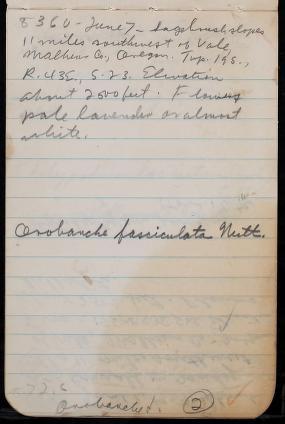 8360 - June 7 - Sagebrush slopes
11 miles southwest of Vale,
Malheur Co., Oregon. Twp. 19 S.,
R. 43 E., S. 23. Elevation
about 2500 feet. Flowers
pale lavender or almost
white.
Orobanche fasciculata Nutt.
Orobanche
2